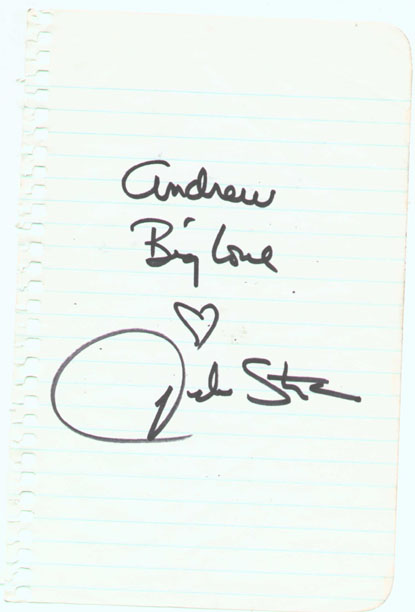 Andrew
Big Love